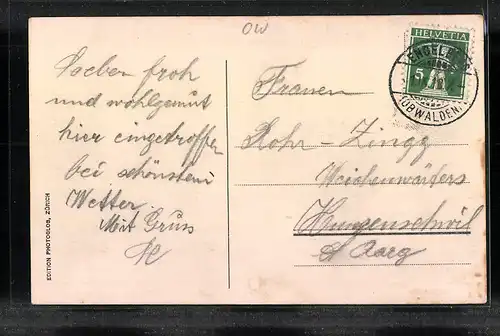 OW
Soeben froh
und wohlgemut
hier eingetroffen
bei schönstem
Wetter.
Mit Gruss
HELVETIA
5
ENGELBERG
(OBWALDEN)
Frauen
Rohr-Zingg
Weichenwärters
Hunzenschwil
Aarg
EDITION PHOTOGLOB, ZÜRICH